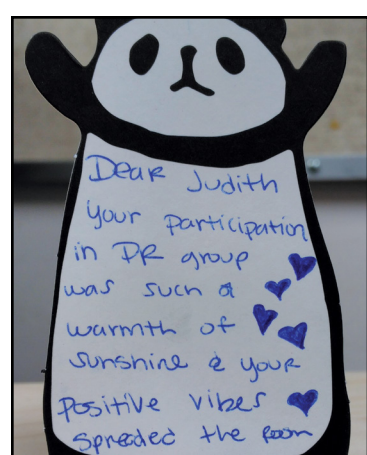 Dear Judith
your participation
in DR group
was such a
warmth of
sunshine & your
positive vibes
spreaded the room